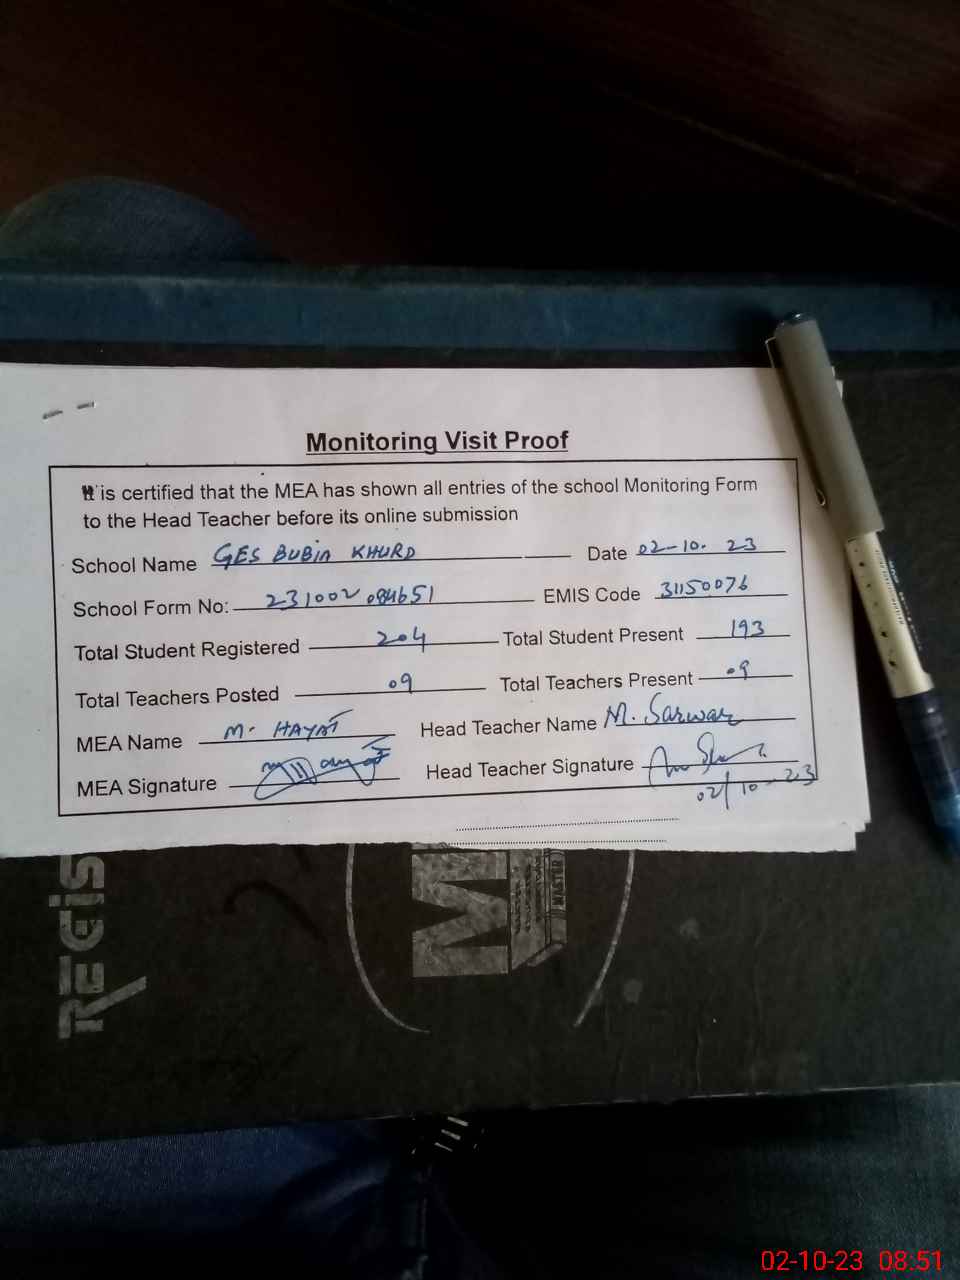 Monitoring Visit Proof
It is certified that the MEA has shown all entries of the school Monitoring Form
to the Head Teacher before its online submission
School Name GES BUBIA KHURD Date 02-10-23
School Form No: 231002084651 EMIS Code 31150076
Total Student Registered 204 Total Student Present 193
Total Teachers Posted 09 Total Teachers Present 09
MEA Name M. HAYAT Head Teacher Name M. Sarwar
MEA Signature Head Teacher Signature
02/10-23
REGIS
M
MASTER
02-10-23 08.51